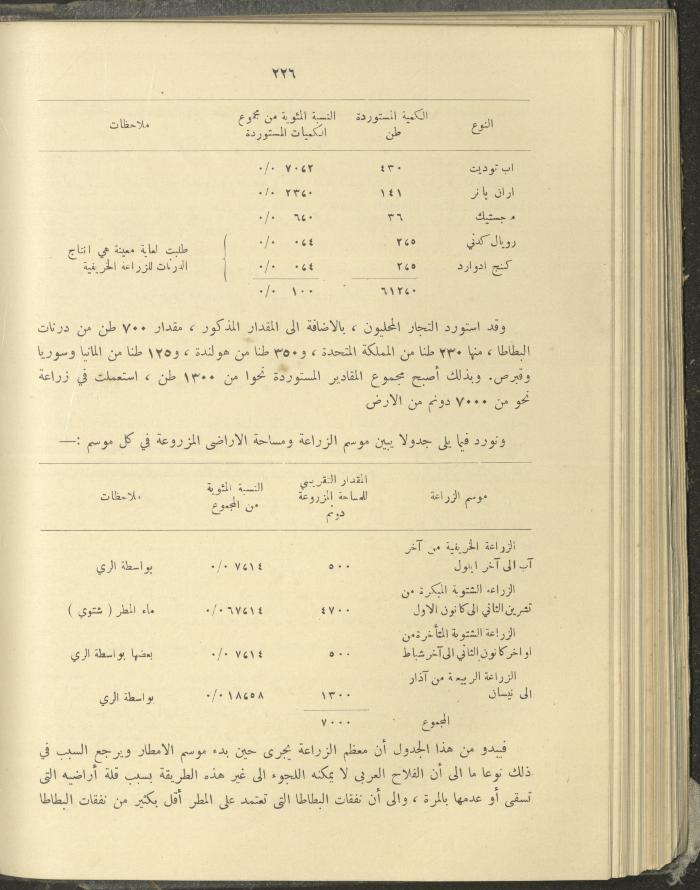 ٢٢٦
النوع الكمية المستوردة طن النسبة المئوية من مجموع الكميات المستوردة ملاحظات
اب توديت ٤٣٠ ٧٠،٢ ٠/٠
اران بانر ١٤١ ٢٣،٠ ٠/٠
مجستيك ٣٦ ٦،٠ ٠/٠
رويال كدني ٢،٥ ٠،٤ ٠/٠ طلبت لغاية معينة هي انتاج
كنج ادوارد ٢،٥ ٠،٤ ٠/٠ الدرنات للزراعة الخريفية
٦١٢،٠ ١٠٠ ٠/٠
وقد استورد التجار المحليون ، بالاضافة الى المقدار المذكور ، مقدار ٧٠٠ طن من درنات
البطاطا ، منها ٢٣٠ طنا من المملكة المتحدة ، و٣٥٠ طنا من هولندة ، و١٢٥ طنا من المانيا وسوريا
وقبرص. وبذلك أصبح مجموع المقادير المستوردة نحوا من ١٣٠٠ طن ، استعملت في زراعة
نحو من ٧٠٠٠ دونم من الارض
ونورد فيما يلى جدولا يبين موسم الزراعة ومساحة الاراضى المزروعة في كل موسم :—
موسم الزراعة المقدار التقريبي للمساحة المزروعة دونم النسبة المئوية من المجموع ملاحظات
الزراعة الخريفية من آخر
آب الى آخر ايلول ٥٠٠ ٧،١٤ ٠/٠ بواسطة الري
الزراعة الشتوية المبكرة من
تشرين الثاني الى كانون الاول ٤٧٠٠ ٦٧،١٤ ٠/٠ ماء المطر ( شتوي )
الزراعة الشتوية المتأخرة من
اواخر كانون الثاني الى آخر شباط ٥٠٠ ٧،١٤ ٠/٠ بعضها بواسطة الري
الزراعة الربيعية من آذار
الى نيسان ١٣٠٠ ١٨،٥٨ ٠/٠ بواسطة الري
المجموع ٧٠٠٠
فيبدو من هذا الجدول أن معظم الزراعة يجرى حين بدء موسم الامطار ويرجع السبب في
ذلك نوعا ما الى أن الفلاح العربى لا يمكنه اللجوء الى غير هذه الطريقة بسبب قلة أراضيه التى
تسقى أو عدمها بالمرة ، والى أن نفقات البطاطا التى تعتمد على المطر أقل بكثير من نفقات البطاطا